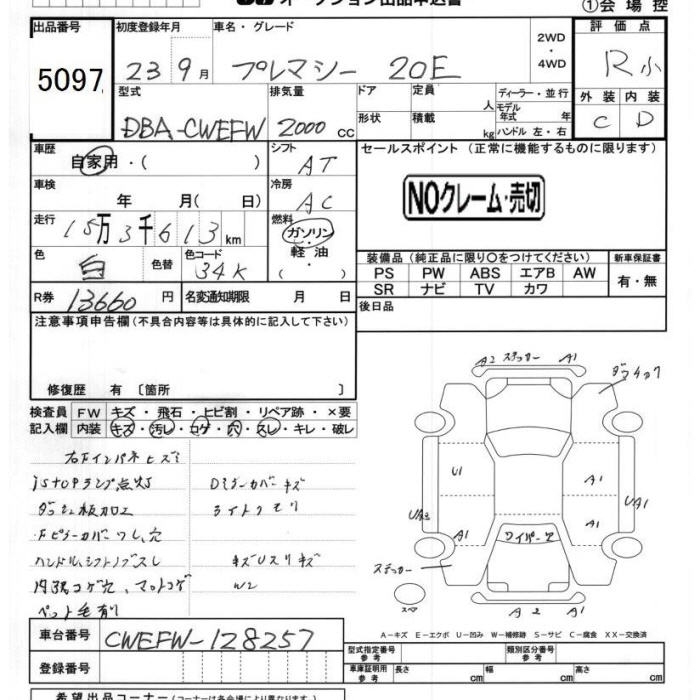 オークション出品申込書
①会場控
出品番号 初度登録年月 車名・グレード 2WD・4WD 評価点
5097 23 9月 プレマシー 20E R小
型式 排気量 ドア 定員 人 ディーラー・並行 外装 内装
DBA-CWEFW 2000cc 形状 積載 kg モデル年式 年 ハンドル 左・右 C D
車歴 自家用・( ) シフト AT セールスポイント (正常に機能するものに限ります)
車検 年 月( 日) 冷房 AC NOクレーム・売切
走行 15万3千613km 燃料 ガソリン・軽油・( )
色 白 色替 色コード 34K 装備品 (純正品に限り○をつけてください) 新車保証書
PS PW ABS エアB AW 有・無
SR ナビ TV カワ
R券 13660円 名変通知期限 月 日 後日品
注意事項申告欄 (不具合内容等は具体的に記入して下さい)
修復歴 有 〔箇所 〕
検査員 FW キズ・飛石・上ビ割・リペア跡・×要
記入欄 内装 キズ・汚レ・コゲ・穴・スレ・キレ・破レ
右下インパネヒズミ
iSTOPランプ点灯 Dミラーカバーキズ
ダッシュ板加工 ライトクモリ
ワレ、穴
ハンドル、シフトノブスレ キズUスリキズ
内張コゲ穴、マットコゲ W2
ペット毛有り
A2 ステッカー A1
U1
A1
UA1
A1
A1
ワイパー欠
ステッカー
スペア
A2 A1
A-キズ E-エクボ U-凹み W-補修跡 S-サビ C-腐食 XX-交換済
車台番号 CWEFW-128257
登録番号
型式指定番号 参考 類別区分番号 参考
車庫証明用 参考 長さ cm 幅 cm 高さ cm
希望出品コーナー (コーナーは各会場により異なります)